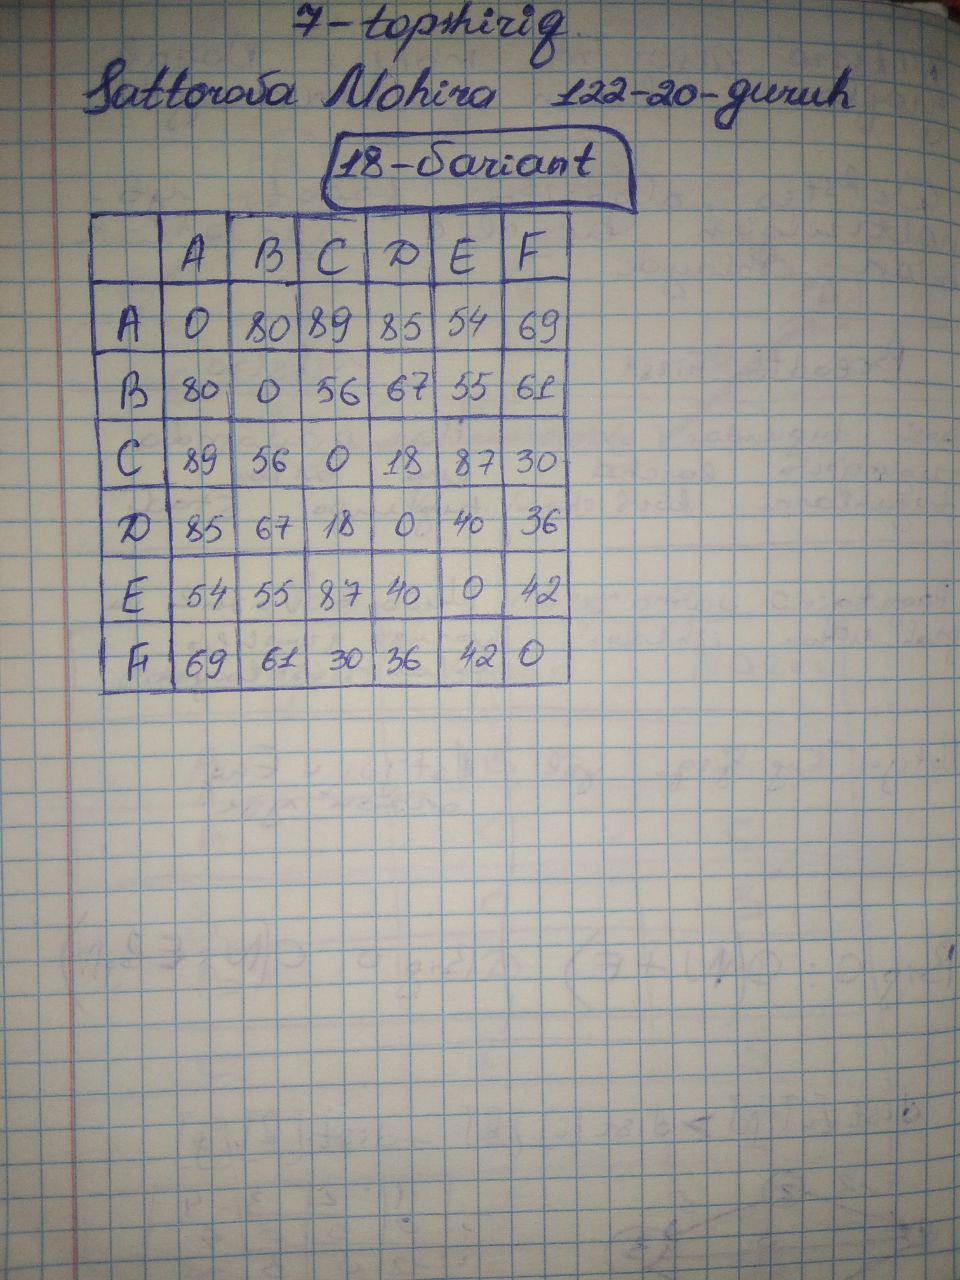 7-topshiriq.
Sattorova Mohira 122-20-guruh
18-variant
A B C D E F
A 0 80 89 85 54 69
B 80 0 56 67 55 61
C 89 56 0 18 87 30
D 85 67 18 0 40 36
E 54 55 87 40 0 42
F 69 61 30 36 42 0